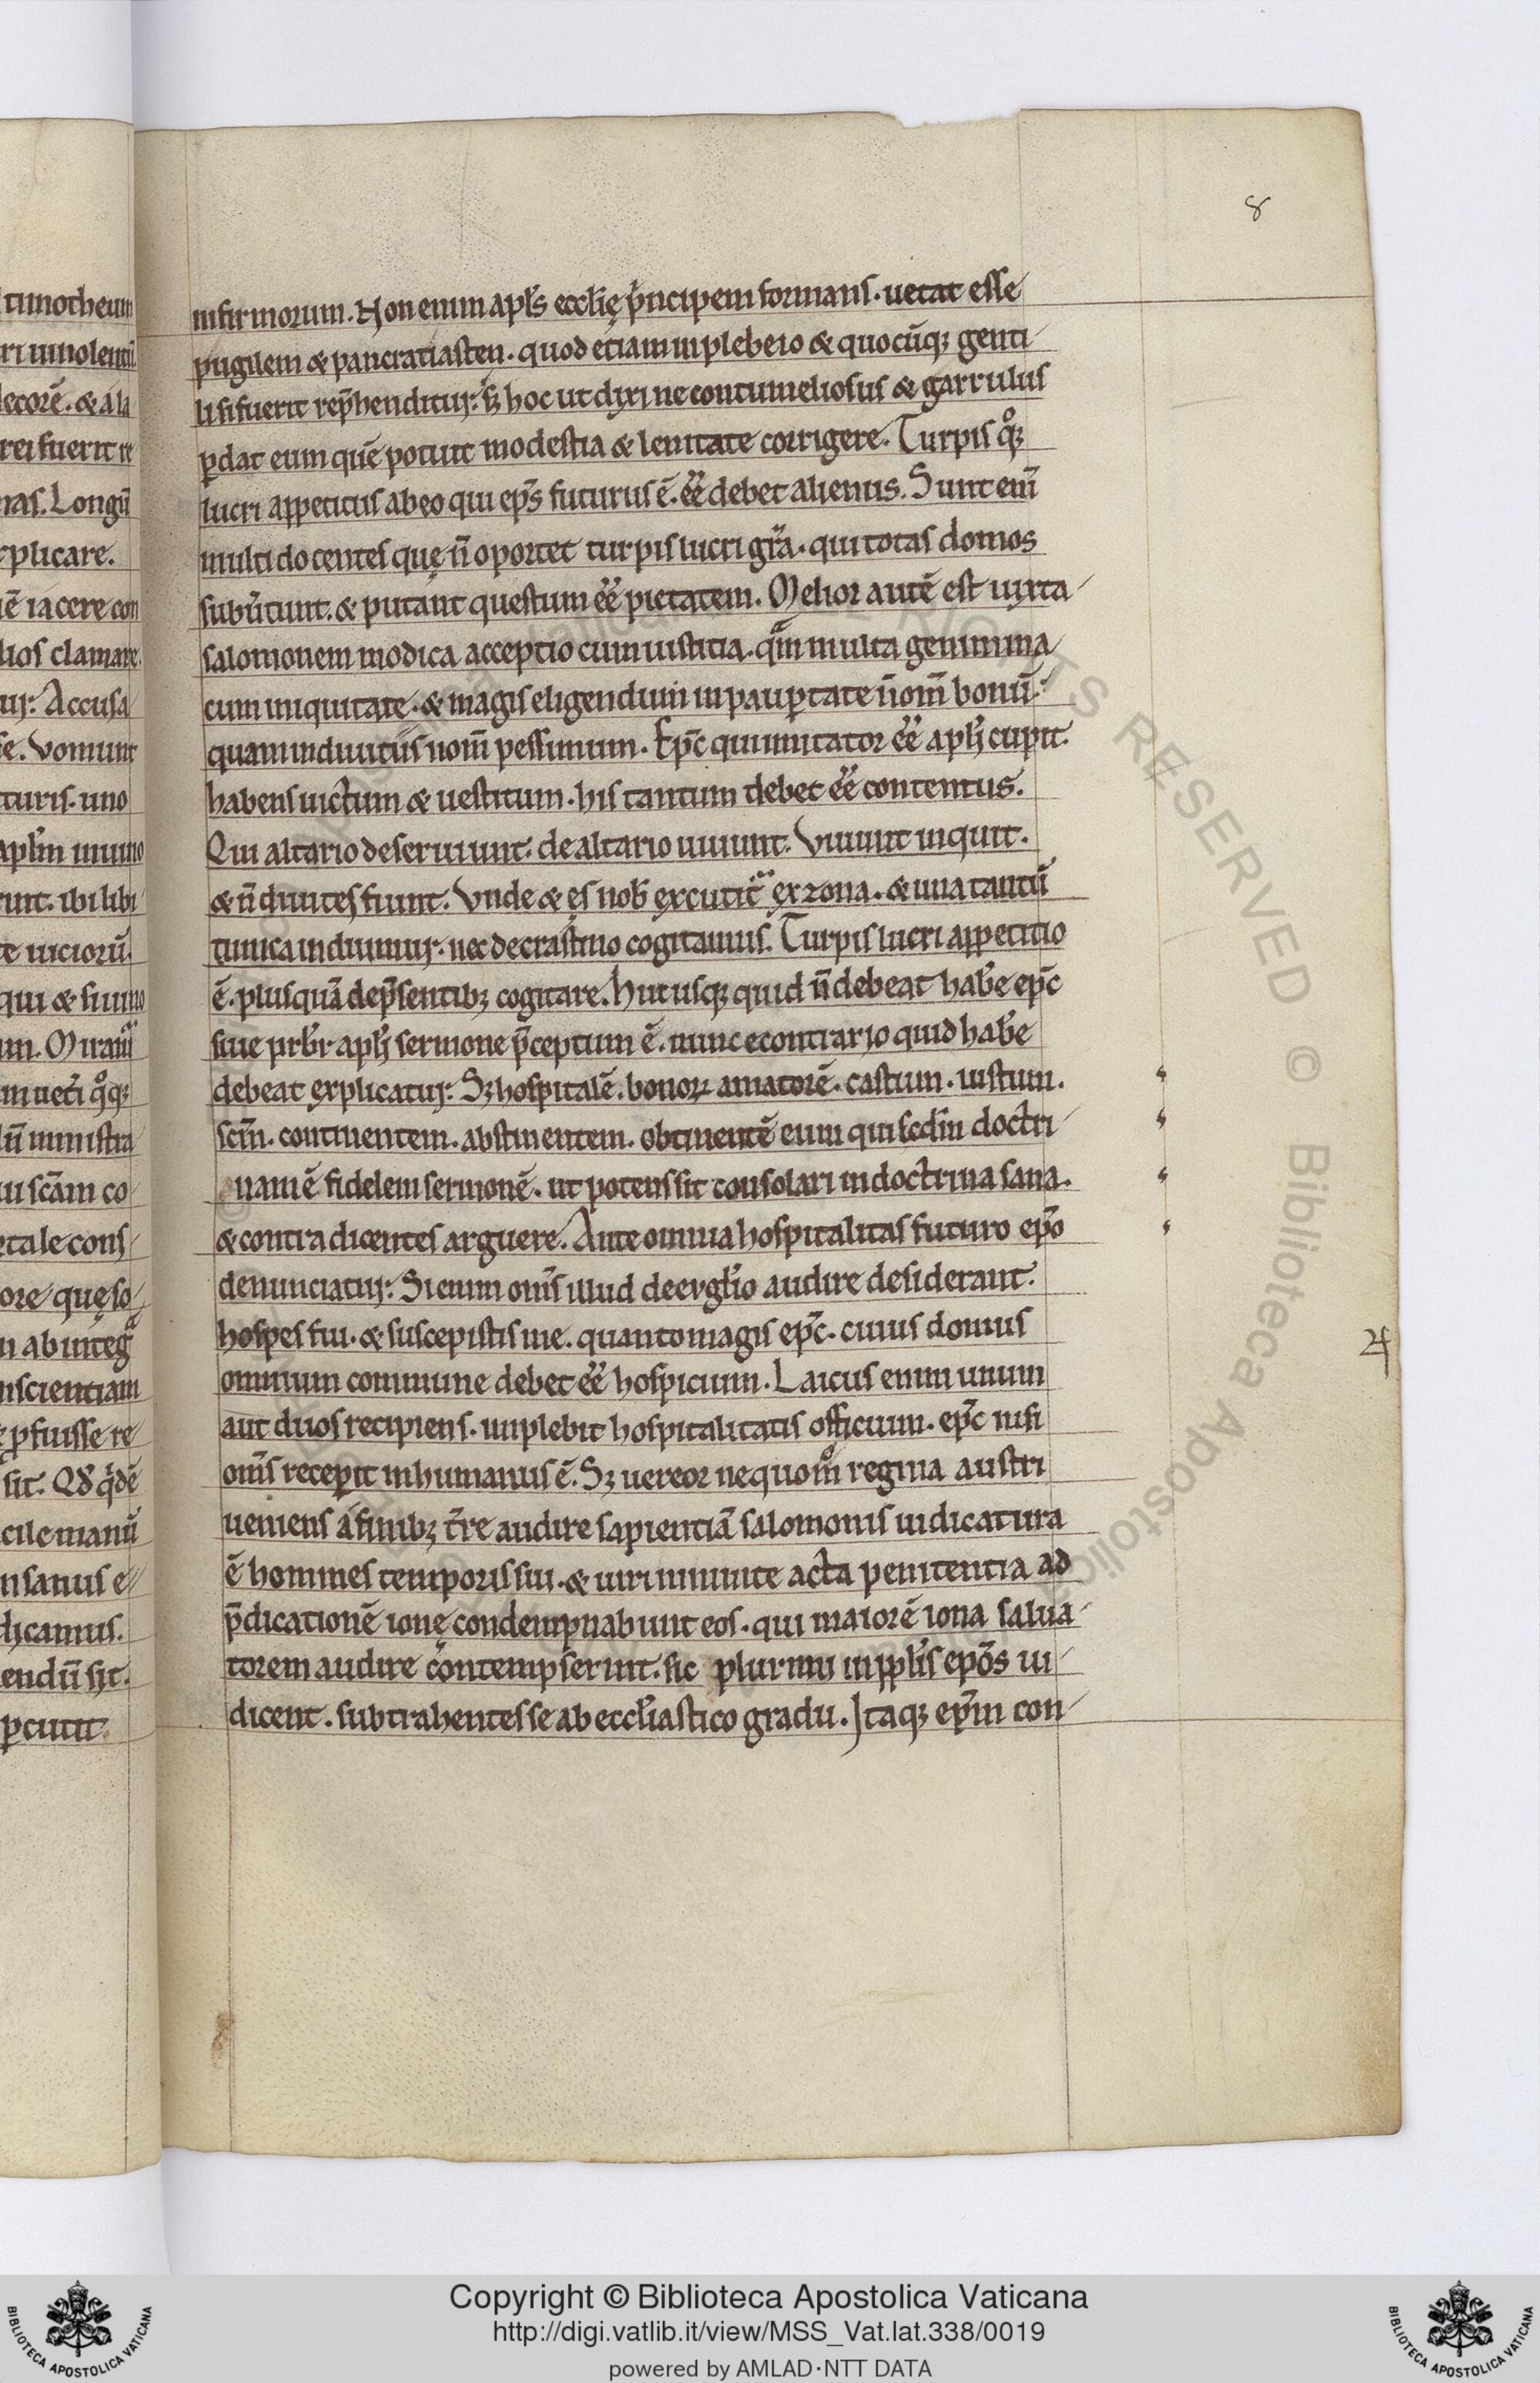 8
infirmorum. Non enim apl̃s eccl̃ię p̃ncipem formans. uetat esse
pugilem & pancratiasten. quod etiam in plebeio & quocũq; genti
li si fuerit rep̃henditur. s; hoc ut dixi ne contumeliosus & garrulus
ꝑdat eum quẽ potuit modestia & lenitate corrigere. Turpis qͦq;
lucri appetitus ab eo qui ep̃s futurus ẽ. eẽ debet alienus. Sunt enĩ
multi docentes quę ñ oportet turpis lucri gr̃a. qui totas domos
subũtunt. & putant questum eẽ pietatem. Melior autẽ est iuxta
salomonem modica acceptio cum iustitia. qm̃ multa genimina
cum iniquitate. & magis eligendum in pauꝑtate ñ nom̃ bonũ.
quam in diuitiis nom̃ pessimum. Ep̃c qui imitator eẽ apl̃i cupit.
habens uictum & uestitum. his tantum debet eẽ contentus.
Qui altario deseruiunt. de altario uiuunt. Viuunt inquit.
& ñ diuites fiunt. Vnde & es nob̃ excutit᷑ ex zona. & una tantũ
tunica induimur. nec de crastino cogitamus. Turpis lucri appetitio
ẽ. plusquã de p̃sentib; cogitare. Huc usq; quid ñ debeat hab̃e ep̃c
siue prb̃r apl̃i sermone p̃ceptum ẽ. nunc econtrario quid hab̃e
debeat explicatur. S; hospitalẽ. bonoꝝ amatorẽ. castum. iustum.
sc̃m. continentem. abstinentem. obtinentẽ eum qui scd̃m doctri
nam ẽ fidelem sermonẽ. ut potens sit consolari in doctrina sana.
& contradicentes arguere. Ante omnia hospitalitas futuro ep̃o
denunciatur. Si enim om̃s illud de evgl̃io audire desiderant.
hospes fui. & suscepistis me. quanto magis ep̃c. cuius domus
omnium commune debet eẽ hospicium. Laicus enim unum
aut duos recipiens. implebit hospitalitatis officium. ep̃c nisi
om̃s receꝑit inhumanus ẽ. S; uereor ne quom̊ regina austri
ueniens a finib; t̃re audire sapientiã salomonis iudicatura
ẽ homines temporis sui. & uiri niniuite acta penitentia ad
p̃dicationẽ ionę condempnabunt eos. qui maiorẽ iona salua
torem audire contempserint. sic plurimi in ppl̃is ep̃os iu
dicent. subtrahentes se ab eccl̃iastico gradu. Itaq; ep̃m con
Copyright © Biblioteca Apostolica Vaticana
http://digi.vatlib.it/view/MSS_Vat.lat.338/0019
powered by AMLAD·NTT DATA